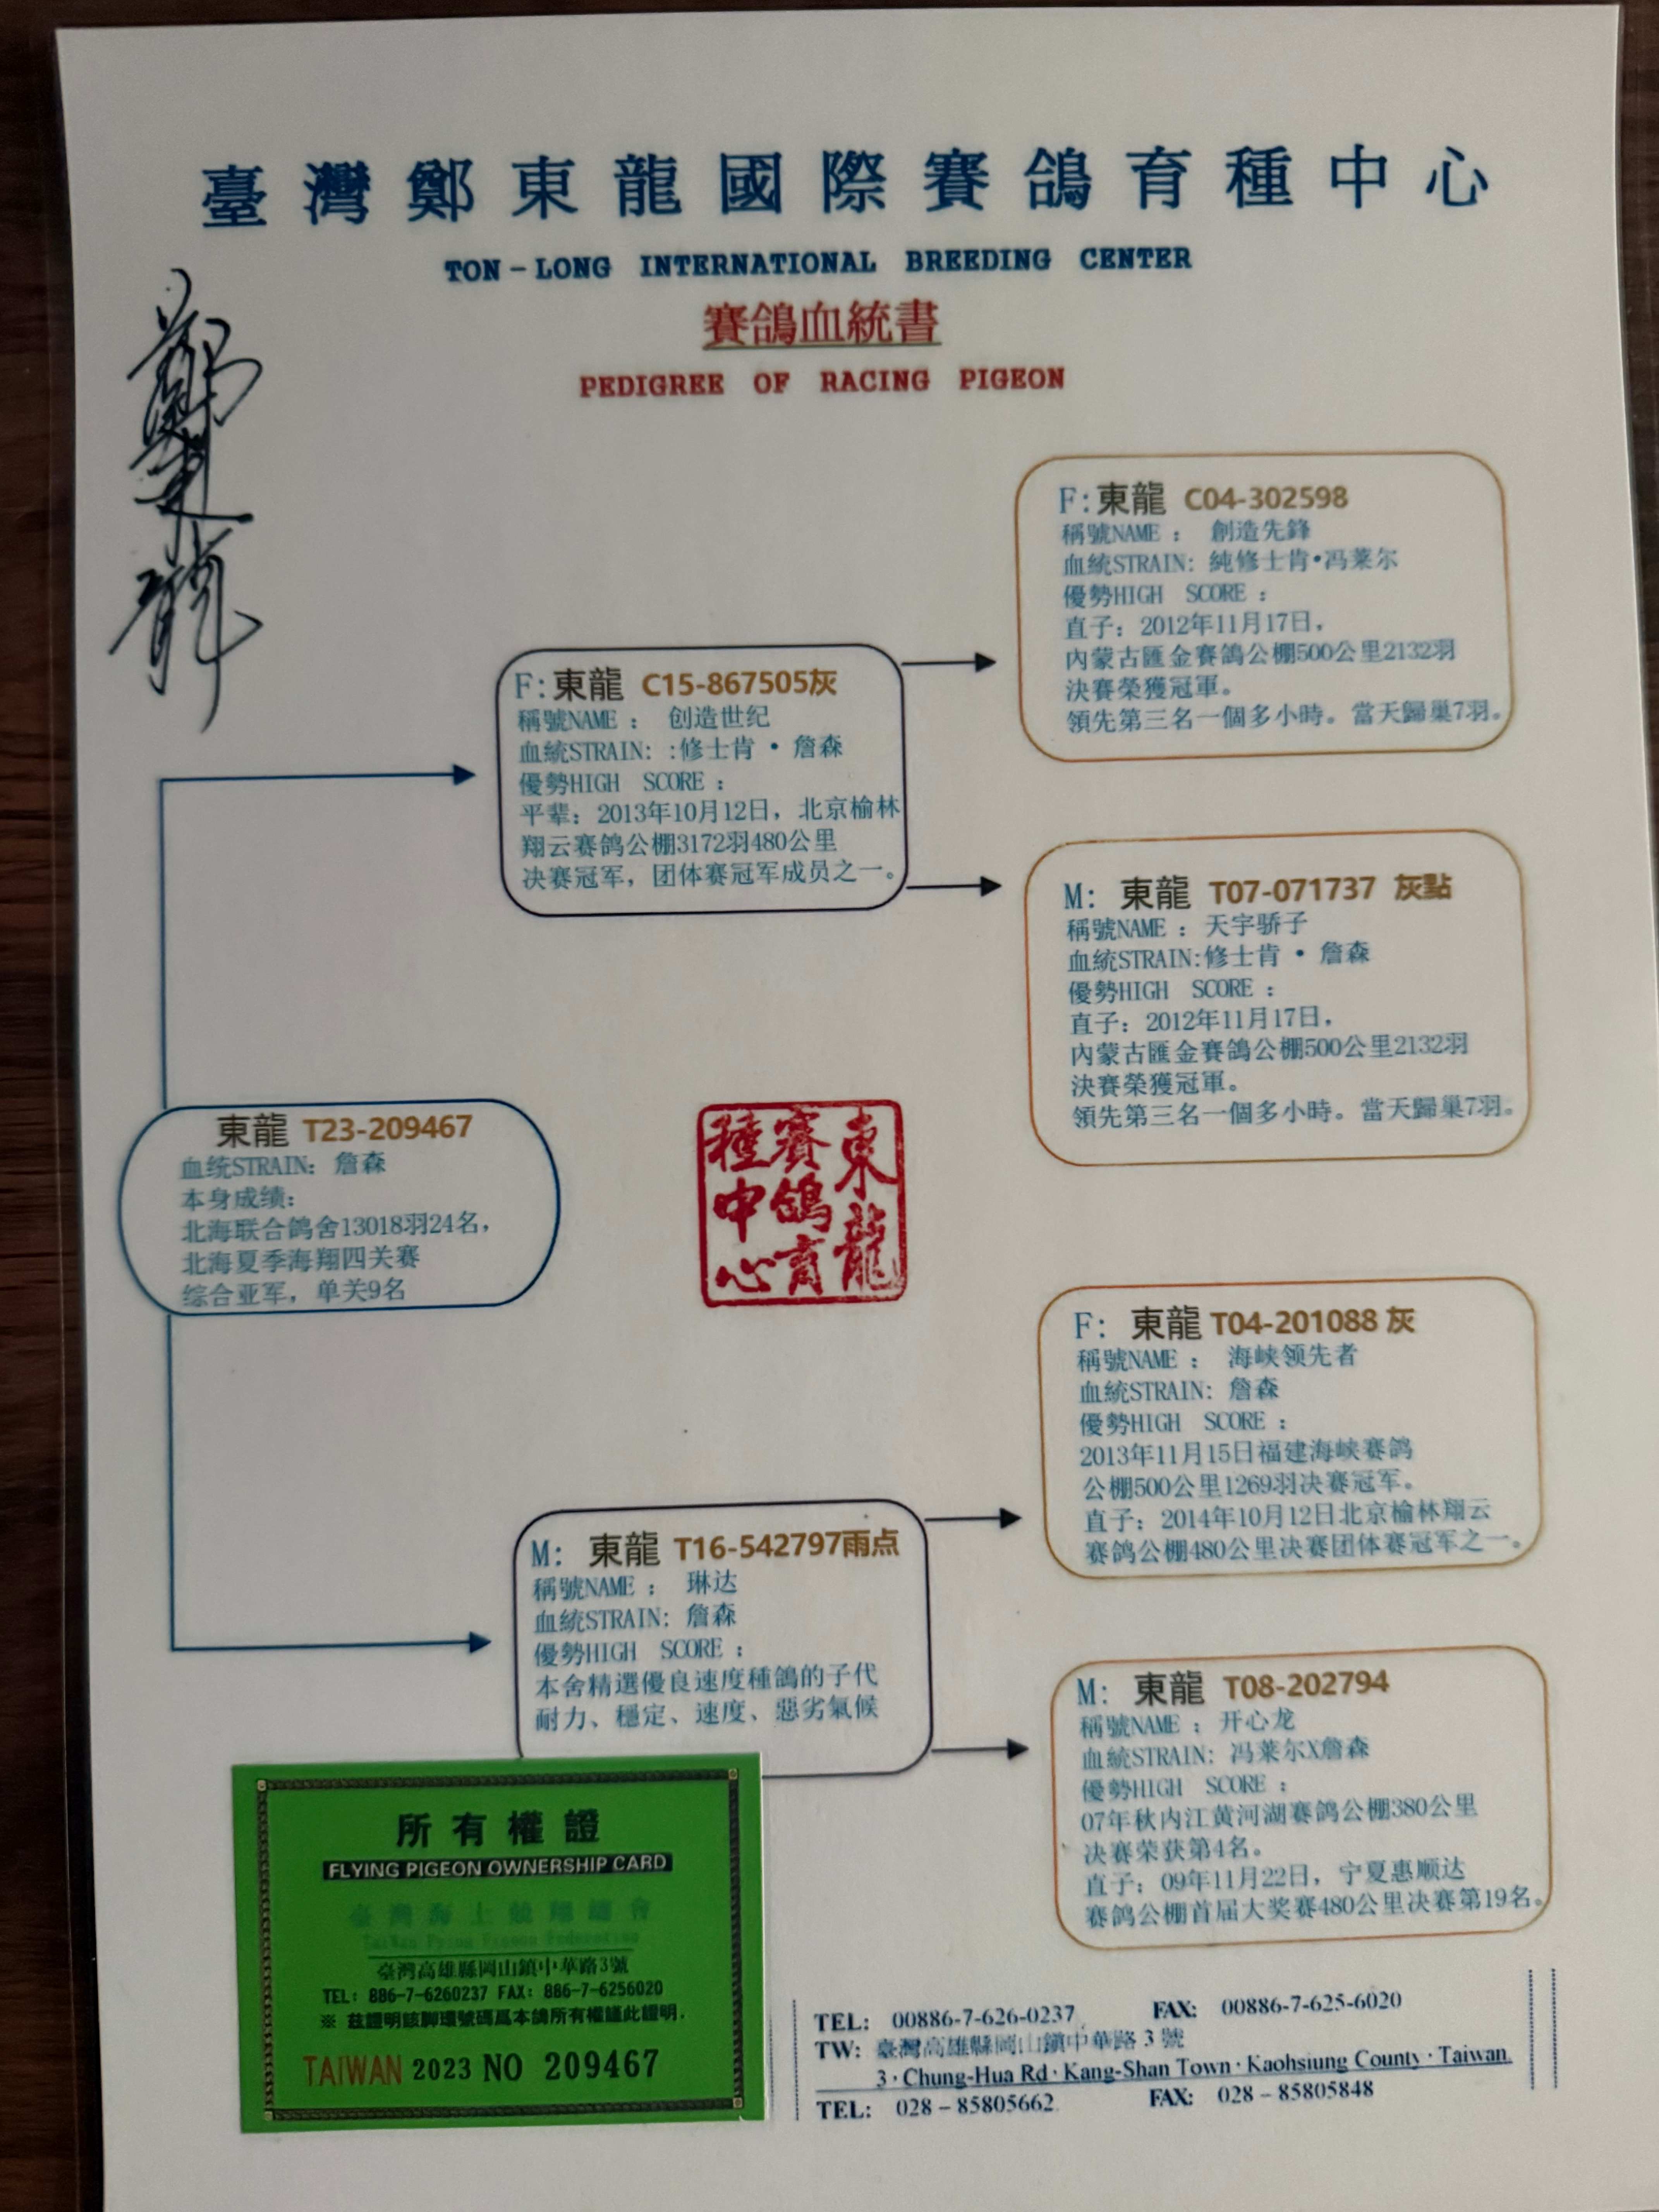 臺灣鄭東龍國際賽鴿育種中心
TON-LONG INTERNATIONAL BREEDING CENTER
賽鴿血統書
PEDIGREE OF RACING PIGEON
鄭東龍
F:東龍 C04-302598
稱號NAME： 創造先鋒
血統STRAIN: 純修士肯•冯莱尔
優勢HIGH SCORE：
直子：2012年11月17日，
內蒙古匯金賽鴿公棚500公里2132羽
決賽榮獲冠軍。
領先第三名一個多小時。當天歸巢7羽。
F:東龍 C15-867505灰
稱號NAME： 创造世纪
血統STRAIN: :修士肯 • 詹森
優勢HIGH SCORE：
平辈：2013年10月12日，北京榆林
翔云赛鸽公棚3172羽480公里
决赛冠军，团体赛冠军成员之一。
M: 東龍 T07-071737 灰點
稱號NAME：天宇骄子
血統STRAIN:修士肯 • 詹森
優勢HIGH SCORE：
直子：2012年11月17日，
內蒙古匯金賽鴿公棚500公里2132羽
決賽榮獲冠軍。
領先第三名一個多小時。當天歸巢7羽。
東龍 T23-209467
血统STRAIN: 詹森
本身成绩：
北海联合鸽舍13018羽24名，
北海夏季海翔四关赛
综合亚军，单关9名
東龍
賽鴿育
種中心
F: 東龍 T04-201088 灰
稱號NAME： 海峡领先者
血統STRAIN: 詹森
優勢HIGH SCORE：
2013年11月15日福建海峡赛鸽
公棚500公里1269羽决赛冠军。
直子：2014年10月12日北京榆林翔云
赛鸽公棚480公里决赛团体赛冠军之一。
M: 東龍 T16-542797雨点
稱號NAME： 琳达
血統STRAIN: 詹森
優勢HIGH SCORE：
本舍精選優良速度種鴿的子代
耐力、穩定、速度、惡劣氣候
M: 東龍 T08-202794
稱號NAME：开心龙
血統STRAIN: 冯莱尔X詹森
優勢HIGH SCORE：
07年秋内江黄河湖赛鸽公棚380公里
决赛荣获第4名。
直子：09年11月22日，宁夏惠顺达
赛鸽公棚首届大奖赛480公里决赛第19名。
所有權證
FLYING PIGEON OWNERSHIP CARD
臺灣海上競翔總會
臺灣高雄縣岡山鎮中華路3號
TEL: 886-7-6260237 FAX: 886-7-6256020
※ 茲證明該腳環號碼爲本鴿所有權謹此證明.
TAIWAN 2023 NO 209467
TEL: 00886-7-626-0237 FAX: 00886-7-625-6020
TW: 臺灣高雄縣岡山鎮中華路 3 號
3·Chung-Hua Rd·Kang-Shan Town·Kaohsiung County·Taiwan
TEL: 028－85805662 FAX: 028－85805848